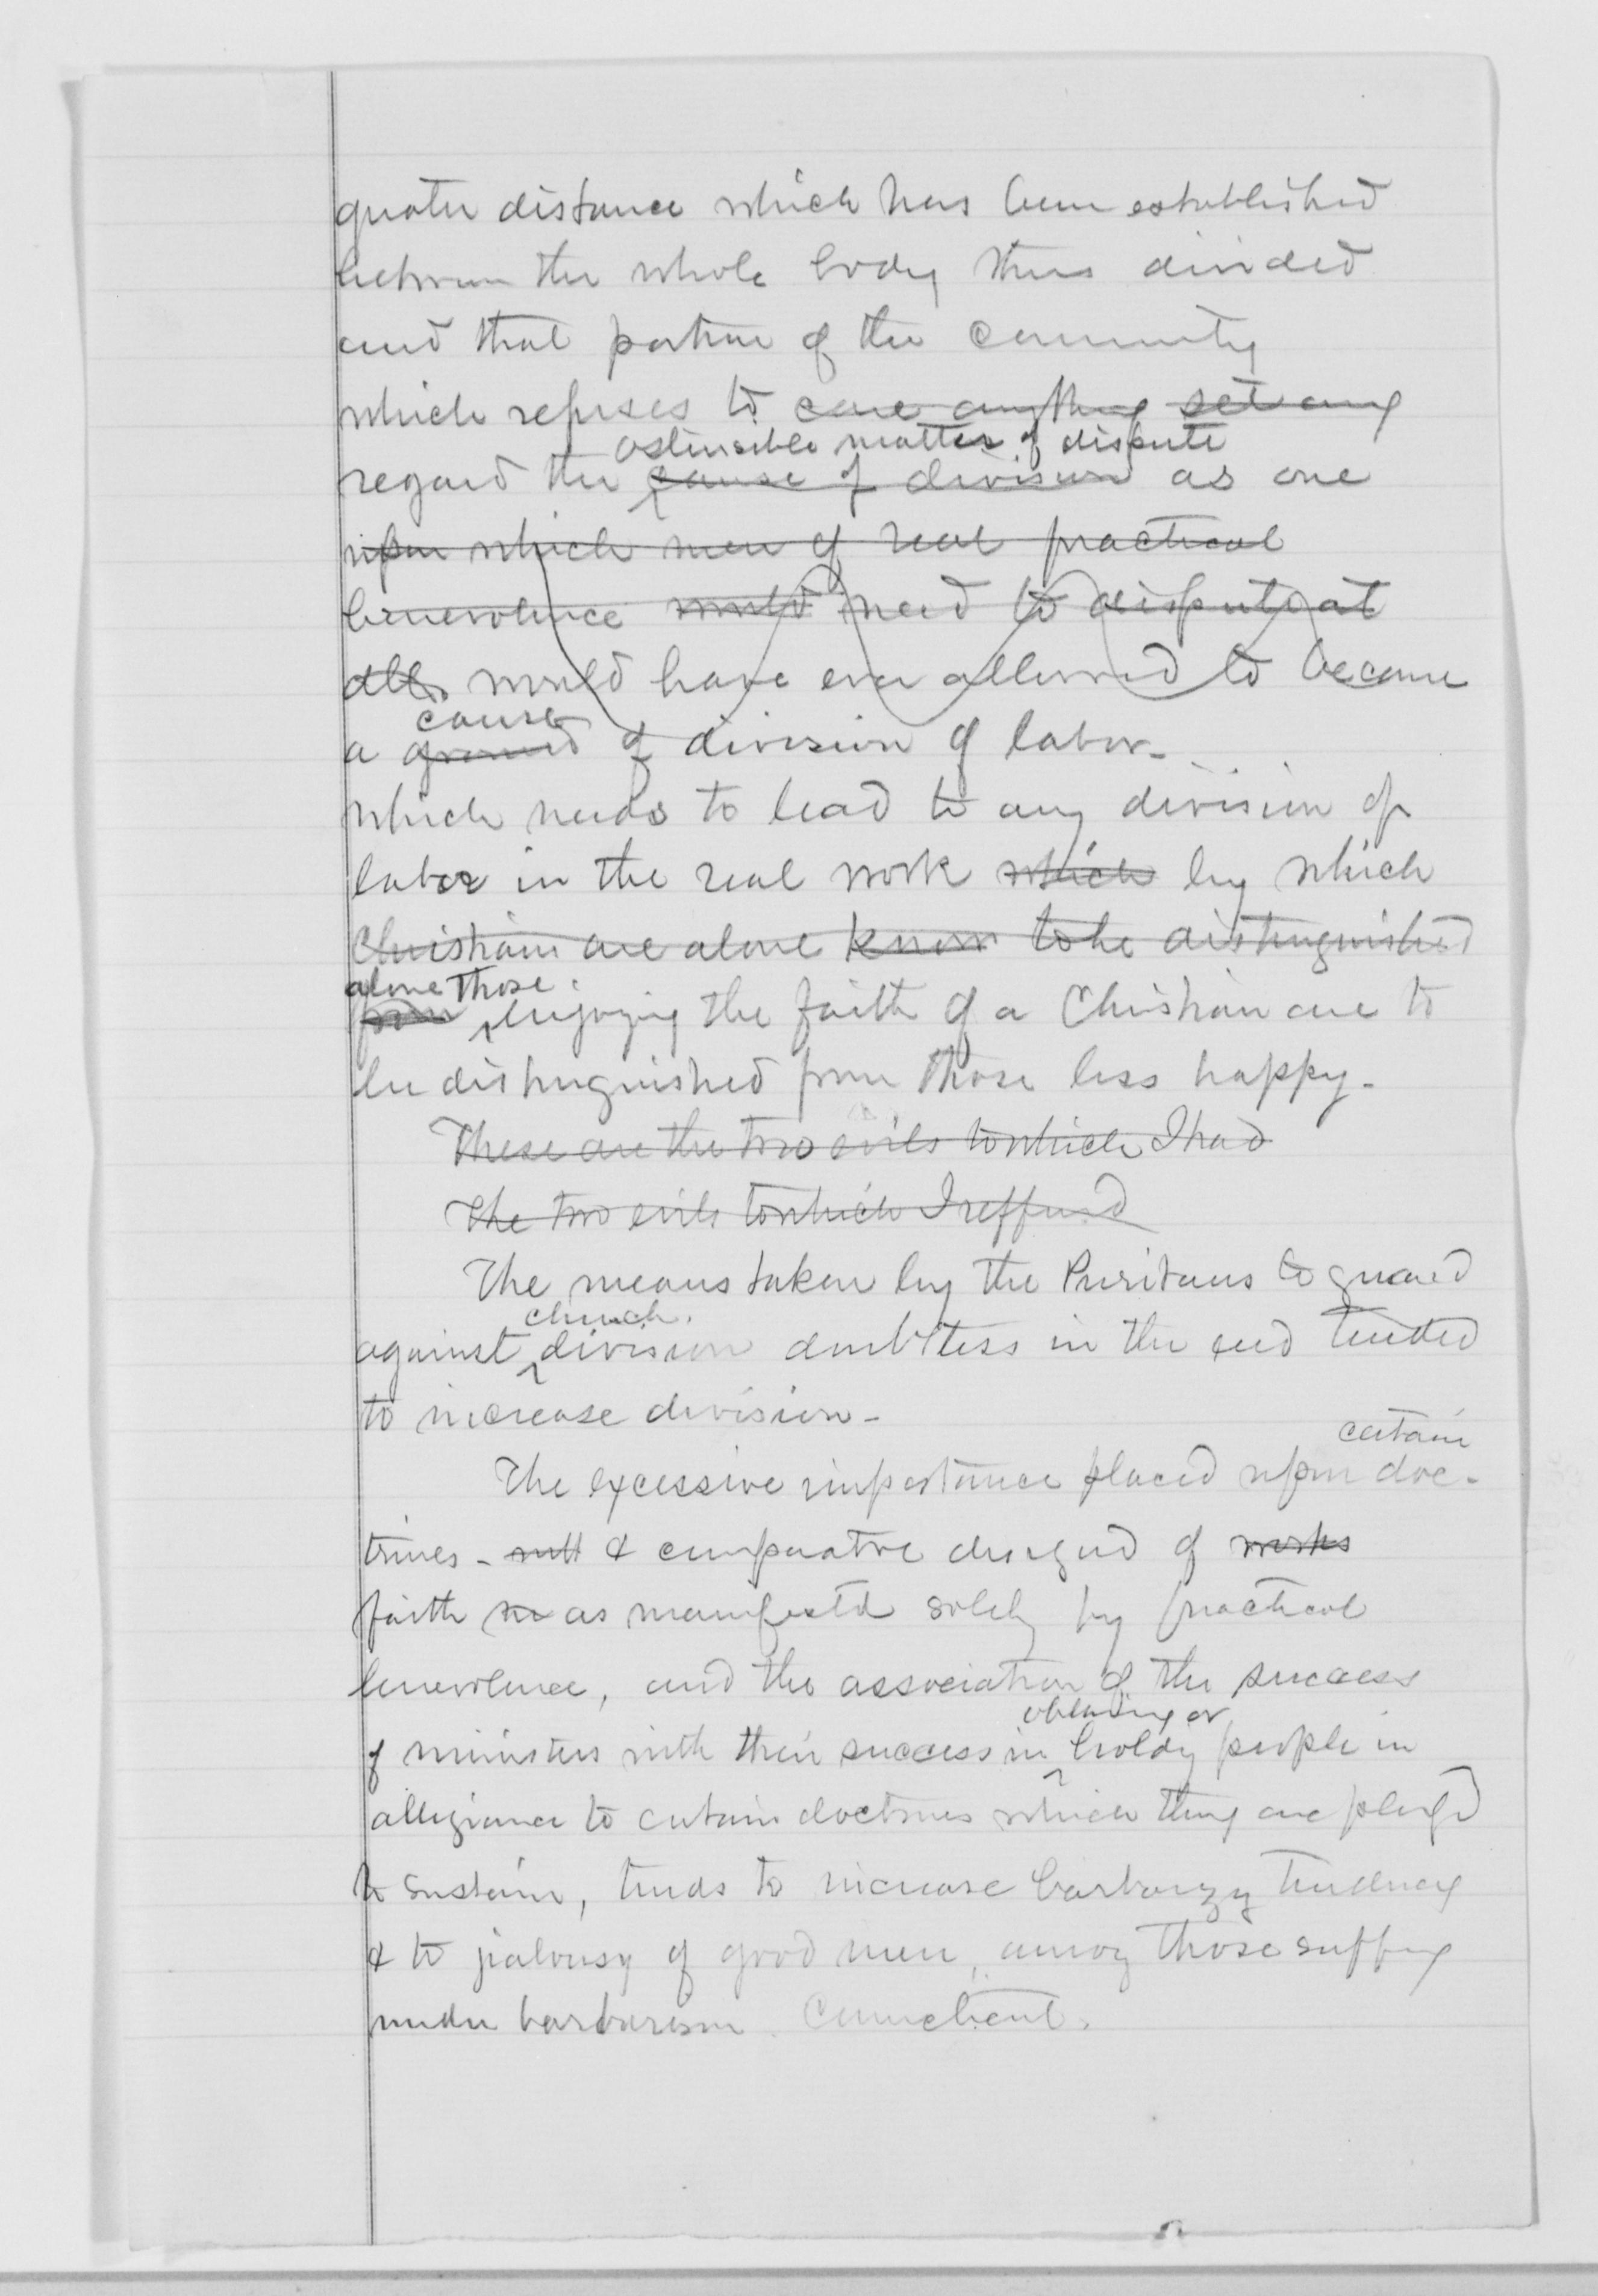 greater distance which has been established
between the whole body thus divided
and that portion of the community
which refuses to care anything set any
ostensible matter of dispute
regard the cause of division as one
upon which men of real practical
benevolence would need to dispute at
all would have ever allowed to become
cause
a ground of division of labor-
which needs to lead to any division of
labor in the real work which by which
Christians are alone known to be distinguished
alone those
from enjoying the faith of a Christian are to
be distinguished from those less happy-
These are the two evils to which I had
The two evils to which I reffered
The means taken by the Puritans to guard
church
against division doubtless in the end tended
to increase division-
certain
The excessive importance placed upon doc-
trines - & comparative disregard of works
faith as manifested solely by practical
benevolence, and the association of the success
obtaining or
of ministers with their success in holdg people in
allegiance to certain doctrines which they are pledgd
to sustain, tends to increase barbarizg tendency
& to jealousy of good men, among those suffering
under barbarism. Connecticut.